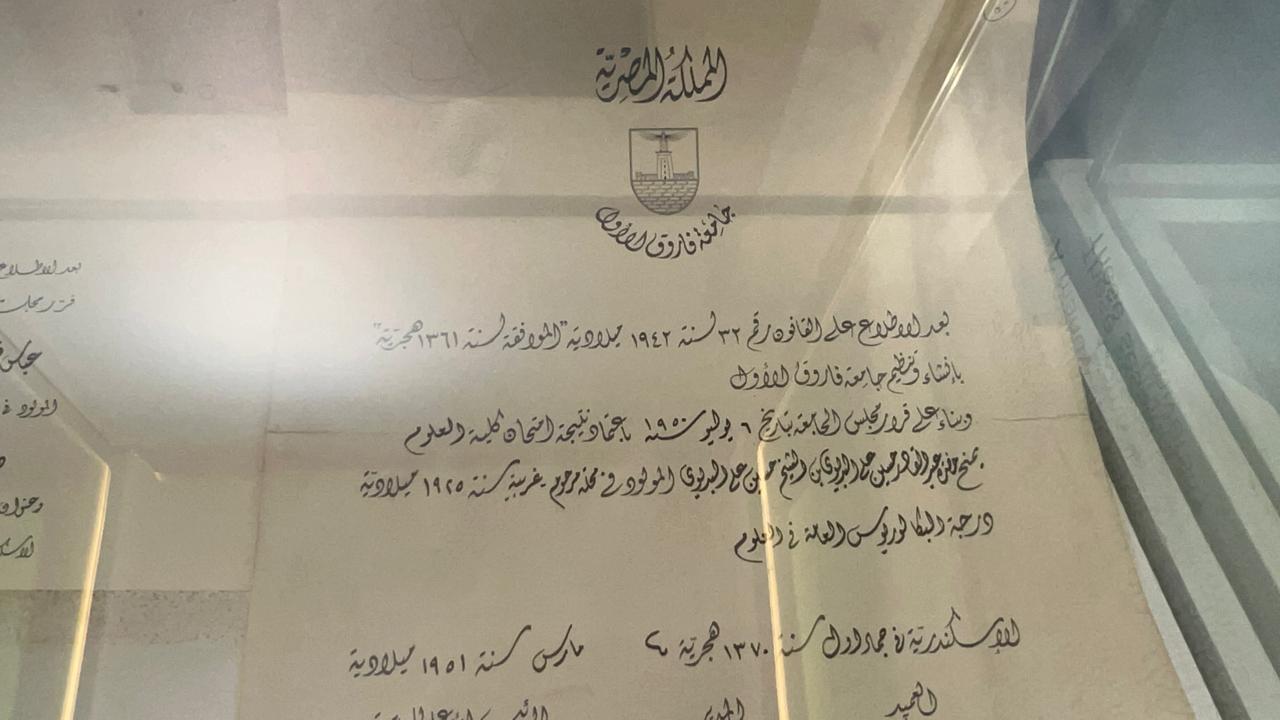 المملكة المصرية
جامعة فاروق الأول
بعد الاطلاع على القانون رقم ٣٢ لسنة ١٩٤٢ ميلادية "الموافقة لسنة ١٣٦١ هجرية"
بإنشاء وتنظيم جامعة فاروق الأول
وبناء على قرار مجلس الجامعة بتاريخ ٦ يوليو سنة ١٩٥٠ باعتماد نتيجة امتحان كلية العلوم
عبد القادر حسين على البديوى بن الشيخ حسين على البديوى المولود فى محلة مرحوم - غربية سنة ١٩٢٥ ميلادية
درجة البكالوريوس العامة فى العلوم
الإسكندرية فى جماد اول سنة ١٣٧٠ هجرية مارس سنة ١٩٥١ ميلادية
العميد المدير
بعد الاطلاع
المولود فى